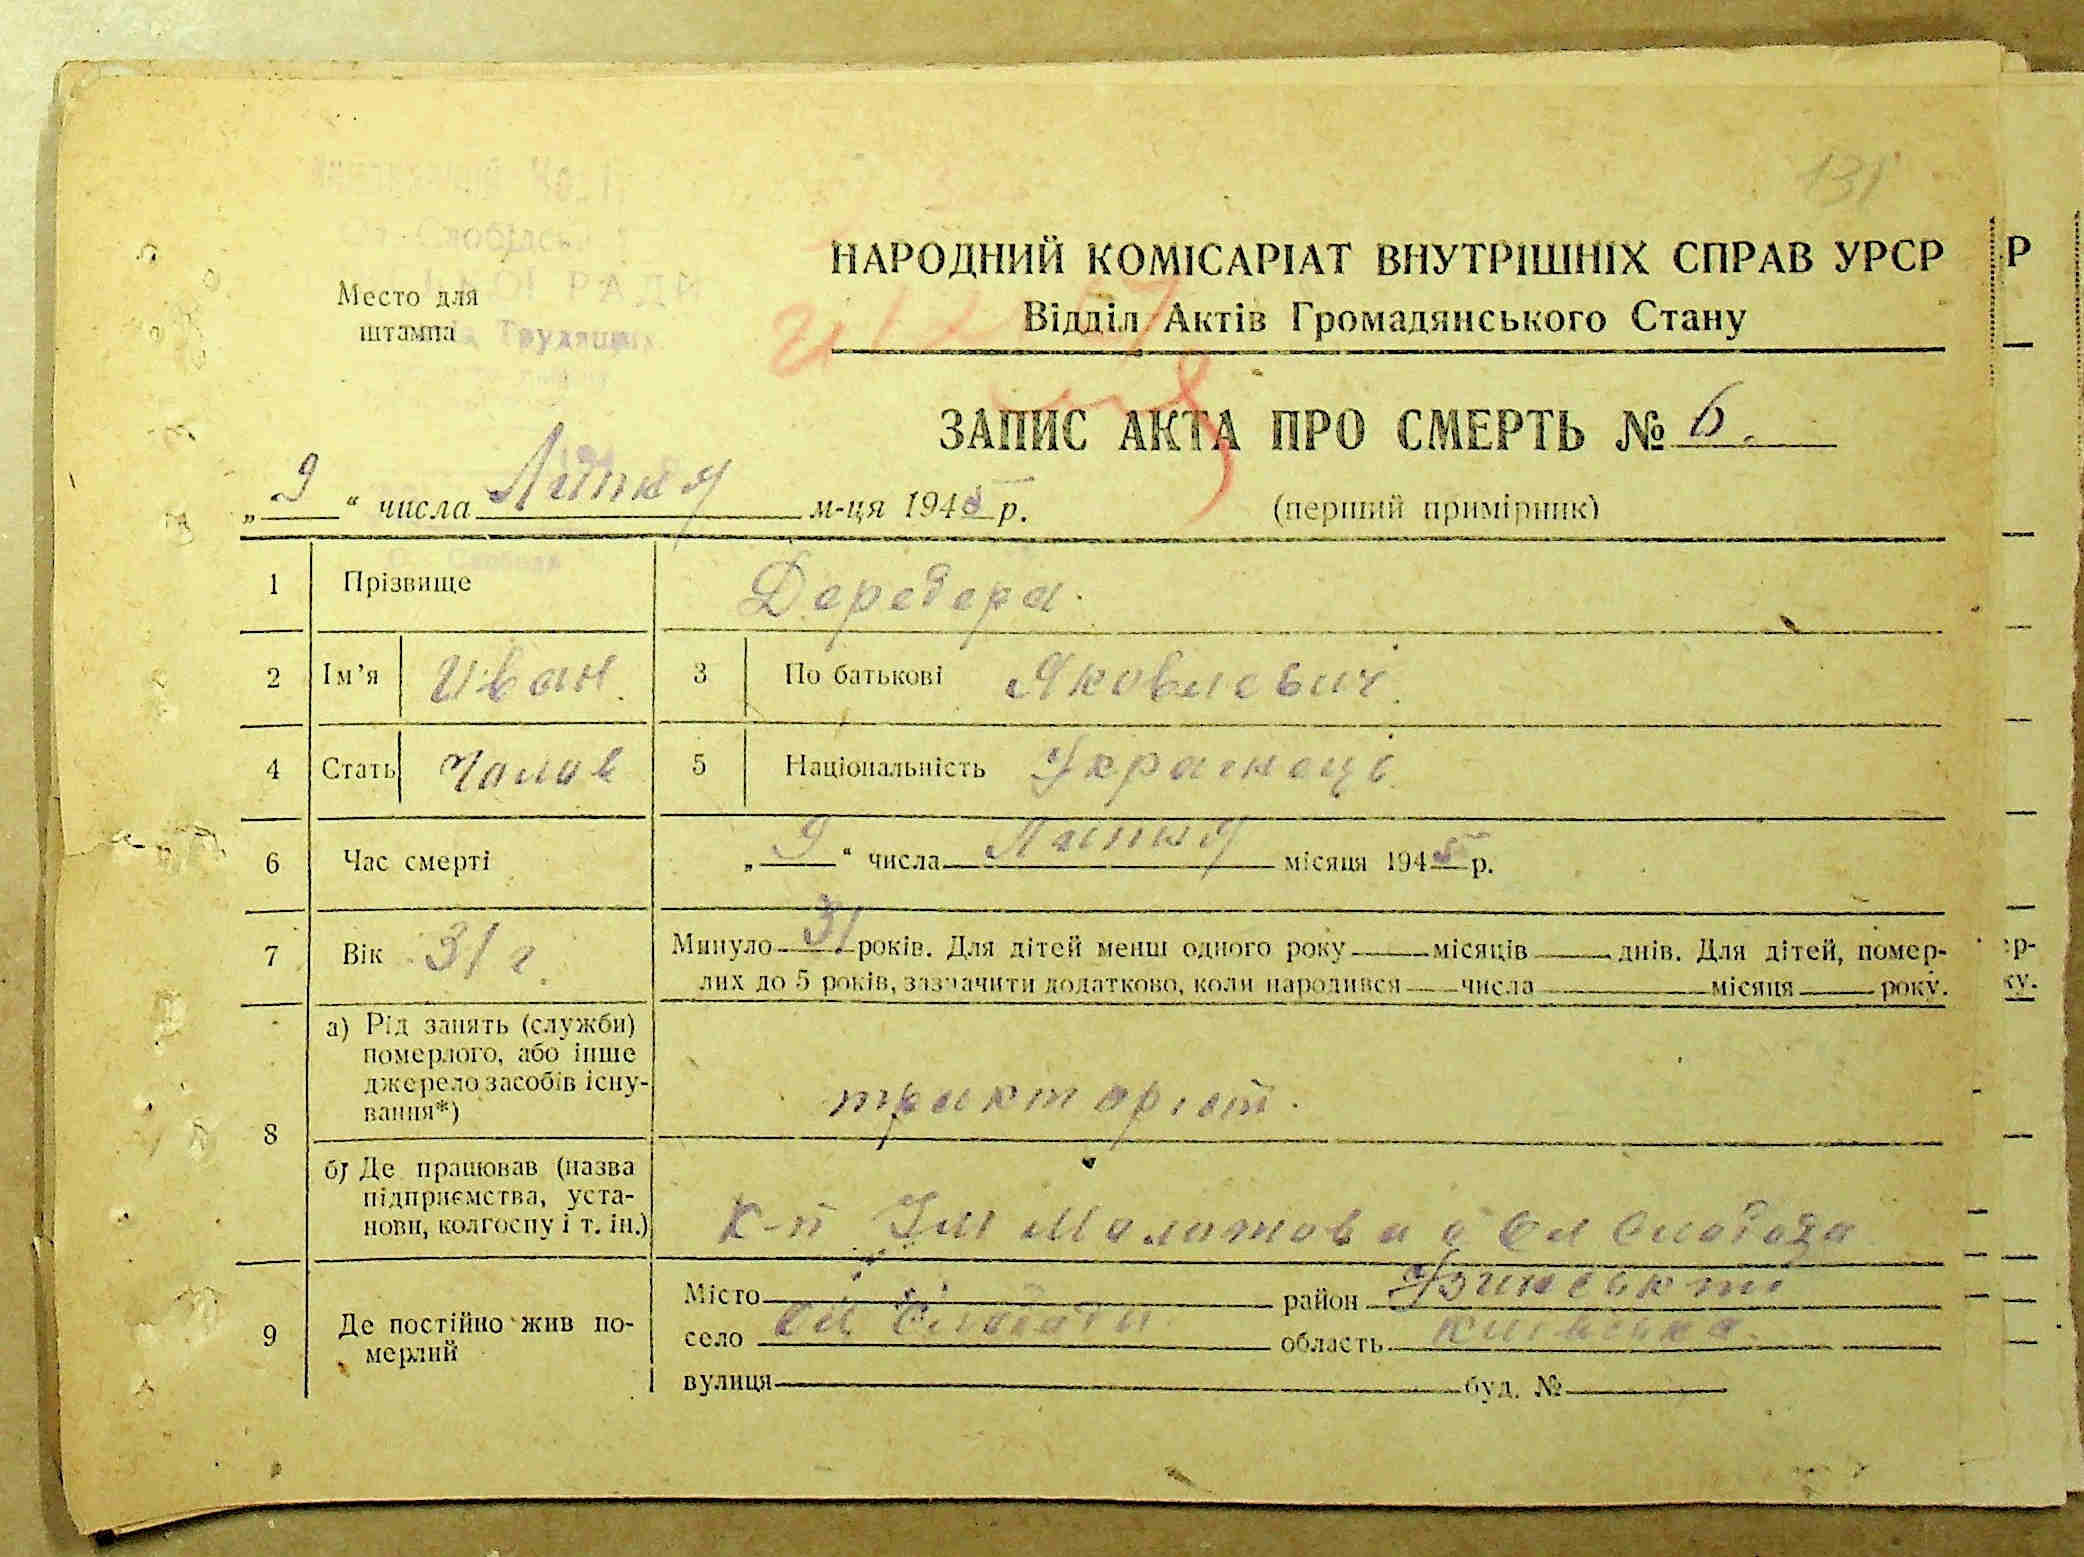 131
Слобідсь
РАДИ
Трудящих
Место для
штампа
НАРОДНИЙ КОМІСАРІАТ ВНУТРІШНІХ СПРАВ УРСР
Відділ Актів Громадянського Стану
ЗАПИС АКТА ПРО СМЕРТЬ № 6.
„9“ числа Липня м-ця 1945 р. (перший примірник)
1 Прізвище Деребера.
2 Ім’я Иван. 3 По батькові Яковлевич.
4 Стать Чолов 5 Національність Украінець
6 Час смерті „9“ числа Липня місяця 1945 р.
7 Вік 31 г. Минуло 31 років. Для дітей менш одного року місяців днів. Для дітей, помер-
лих до 5 років, зазначити додатково, коли народився числа місяця року.
8 а) Рід занять (служби)
померлого, або інше
джерело засобів існу-
вання*) тракторіст.
б) Де працював (назва
підприємства, уста-
нови, колгоспу і т. ін.) К-п Ім Молотова с Ол Слобода
9 Де постійно жив по-
мерлий
Місто район Узинський
село Ол Слобода область Київська.
вулиця буд. №
Р
ер-
ку.